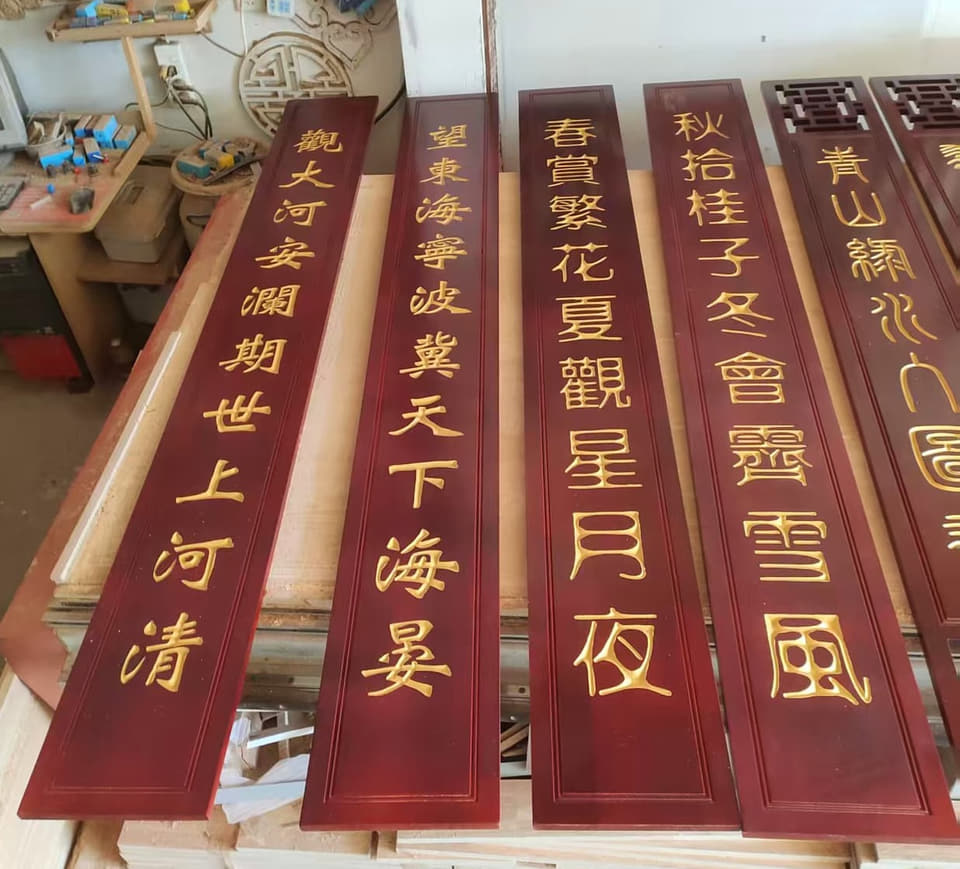 觀大河安瀾期世上河清
望東海寧波冀天下海晏
春賞繁花夏觀星月夜
秋拾桂子冬會霽雪風
青山綠水入圖